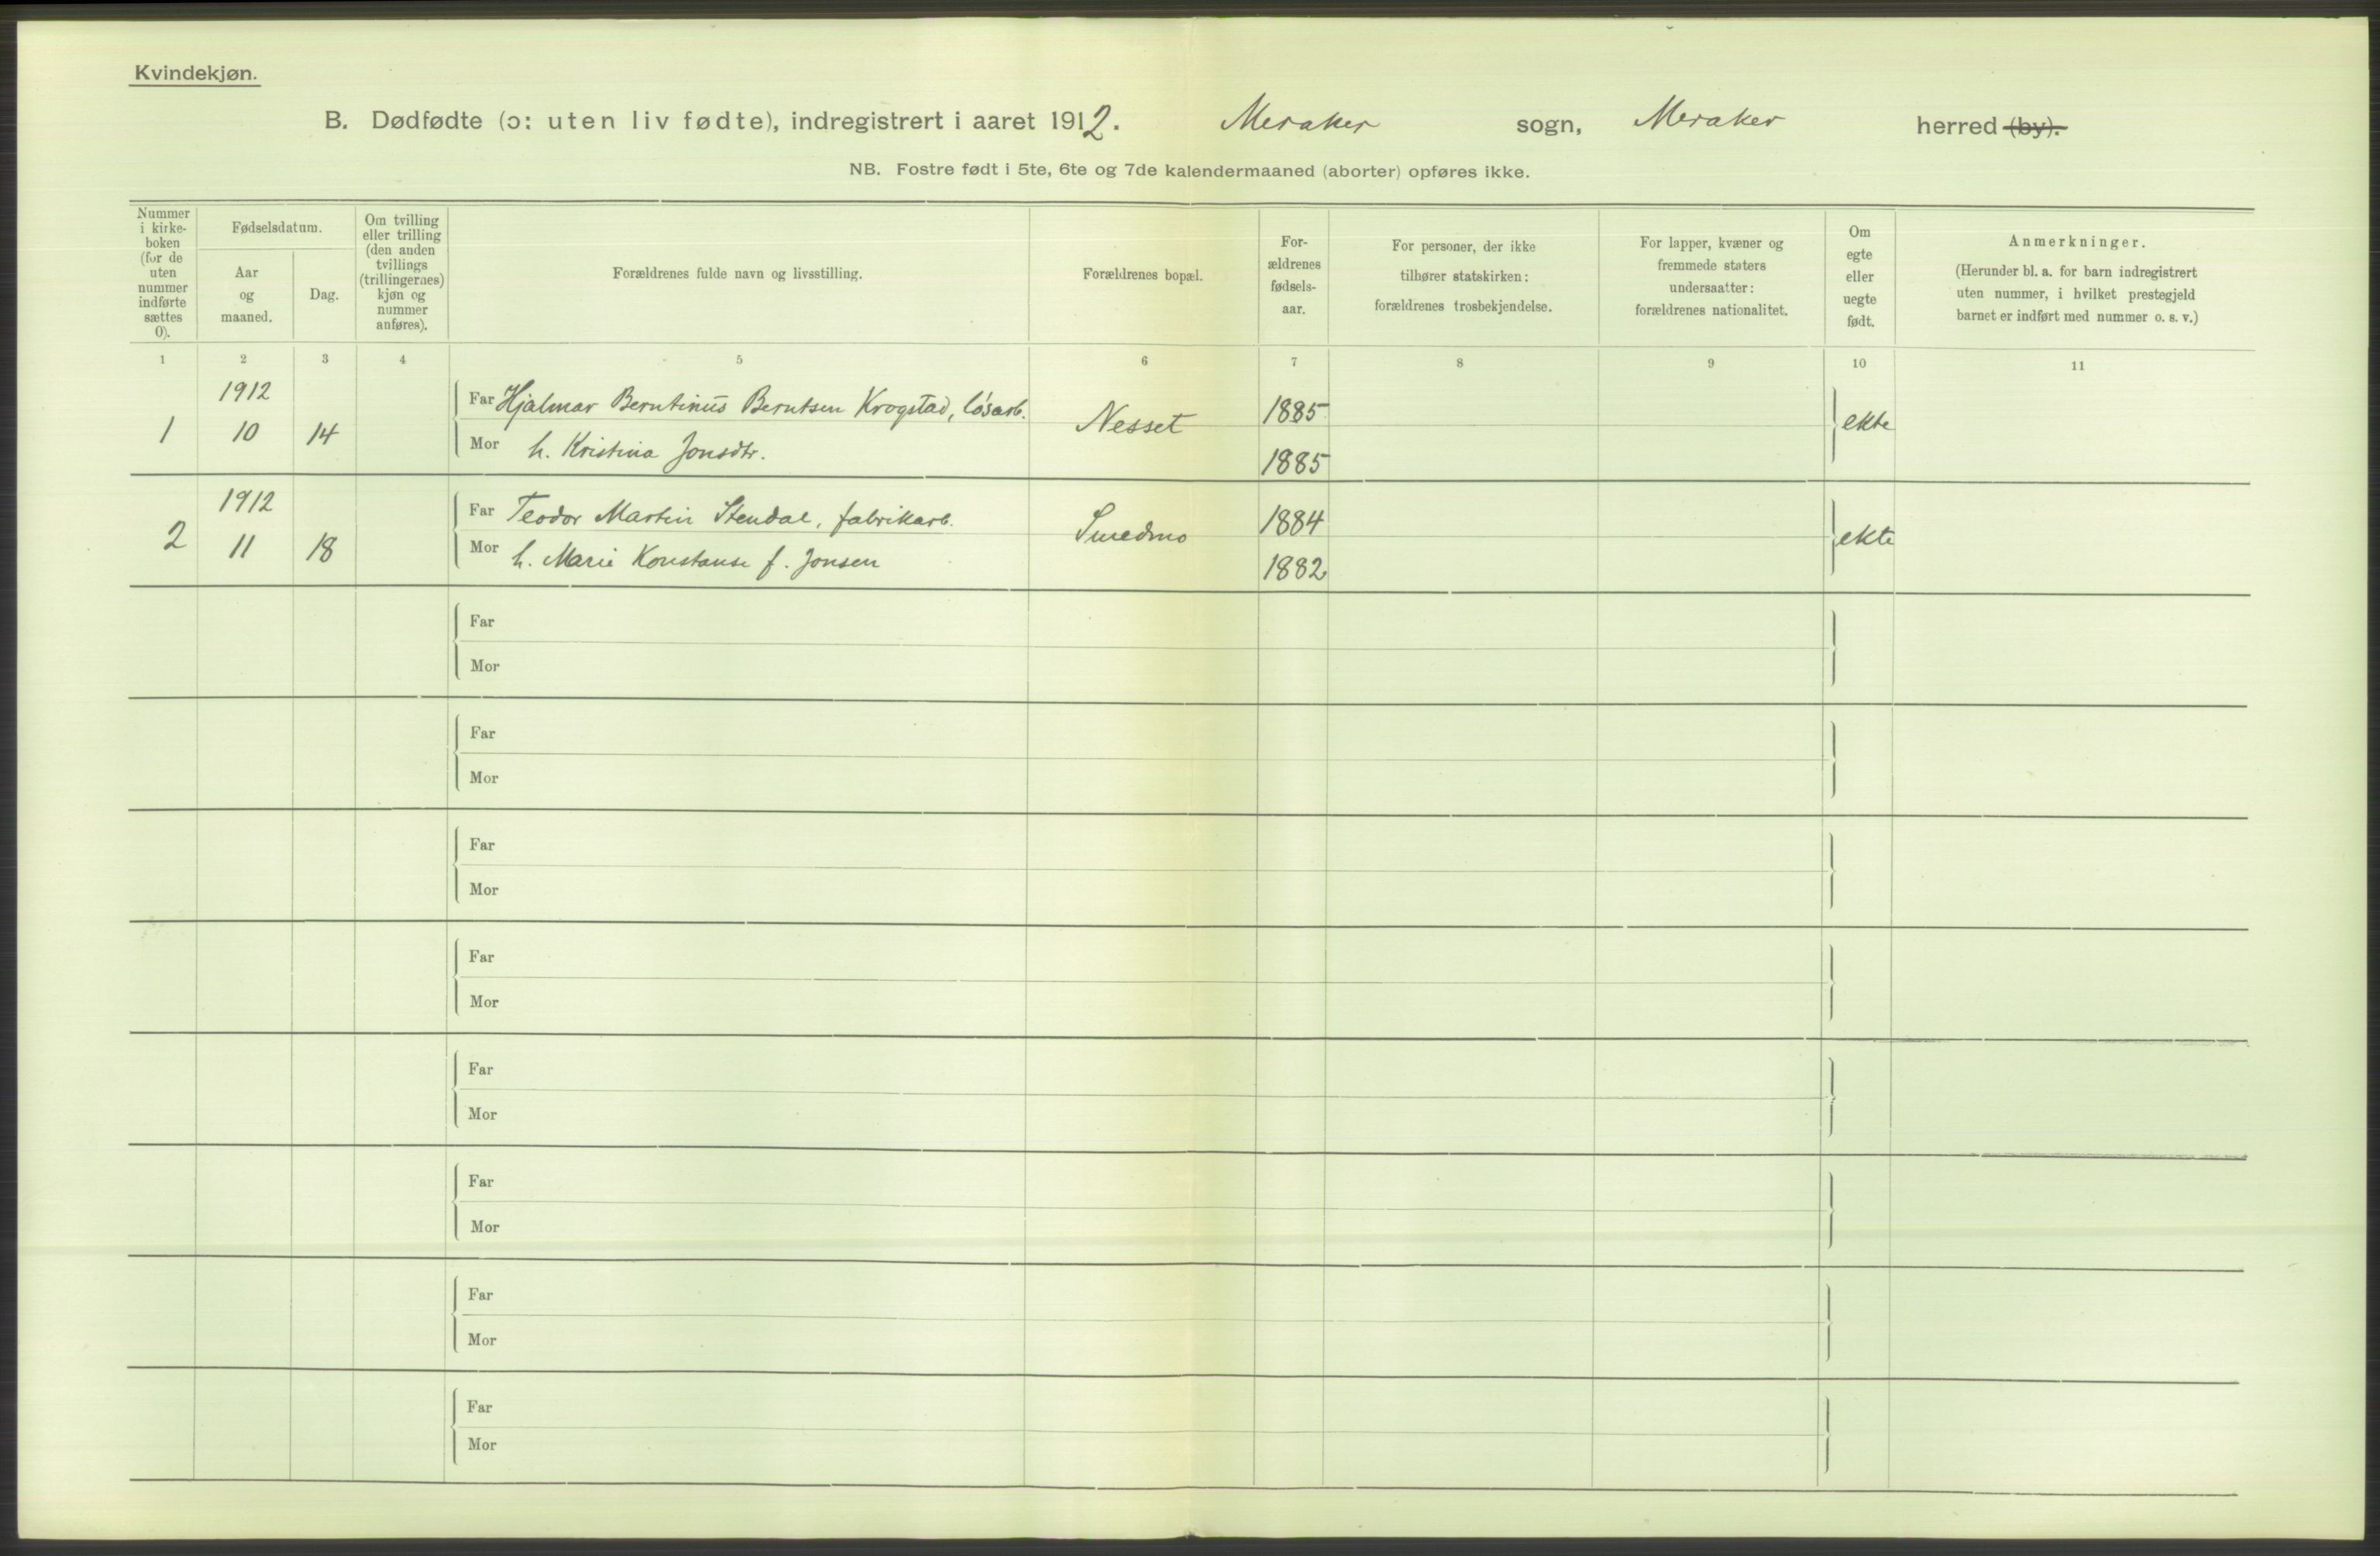 Kvindekjøn.
B. Dødfødte (ɔ: uten liv fødte), indregistrert i aaret 1912. Meraker sogn, Meraker herred (by).
NB. Fostre født i 5te, 6te og 7de kalendermaaned (aborter) opføres ikke.
Nummer
i kirke-
boken
(for de
uten
nummer
indførte
sættes
0).
Fødselsdatum.
Aar
og
maaned.
Dag.
Om tvilling
eller trilling
(den anden
tvillings
(trillingernes)
kjøn og
nummer
anføres).
Forældrenes fulde navn og livsstilling.
Forældrenes bopæl.
For-
ældrenes
fødsels-
aar.
For personer, der ikke
tilhører statskirken:
forældrenes trosbekjendelse.
For lapper, kvæner og
fremmede staters
undersaatter:
forældrenes nationalitet.
Om
egte
eller
uegte
født.
Anmerkninger.
(Herunder bl. a. for barn indregistrert
uten nummer, i hvilket prestegjeld
barnet er indført med nummer o. s. v.)
1 2 3 4 5 6 7 8 9 10 11
1912
1 10 14
Far Hjalmar Berntinus Berntsen Krogstad, løsarb.
Mor h. Kristina Jonsdtr.
Nesset
1885
1885
ekte
1912
2 11 18
Far Teodor Martin Stendal, fabrikarb.
Mor h. Marie Konstanse f. Jonsen
Smedmo
1884
1882
ekte
Far
Mor
Far
Mor
Far
Mor
Far
Mor
Far
Mor
Far
Mor
Far
Mor
Far
Mor